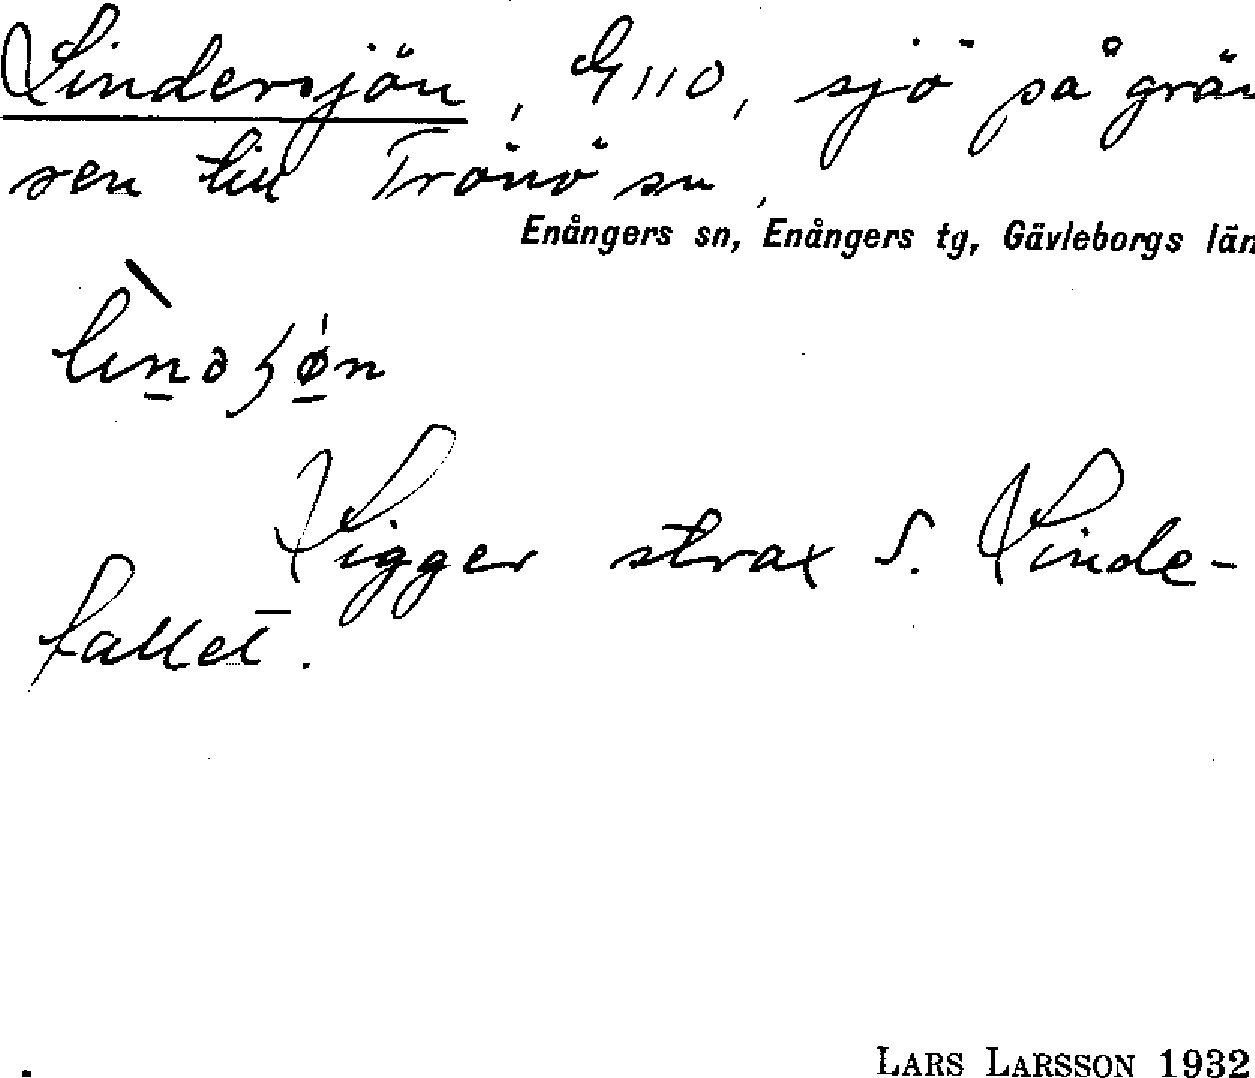 Lindersjön, G 110, sjö på grän
sen till Trönö sn,
Enångers sn, Enångers tg, Gävleborgs län
Ligger strax S. Linde-
fallet.
LARS LARSSON 1932